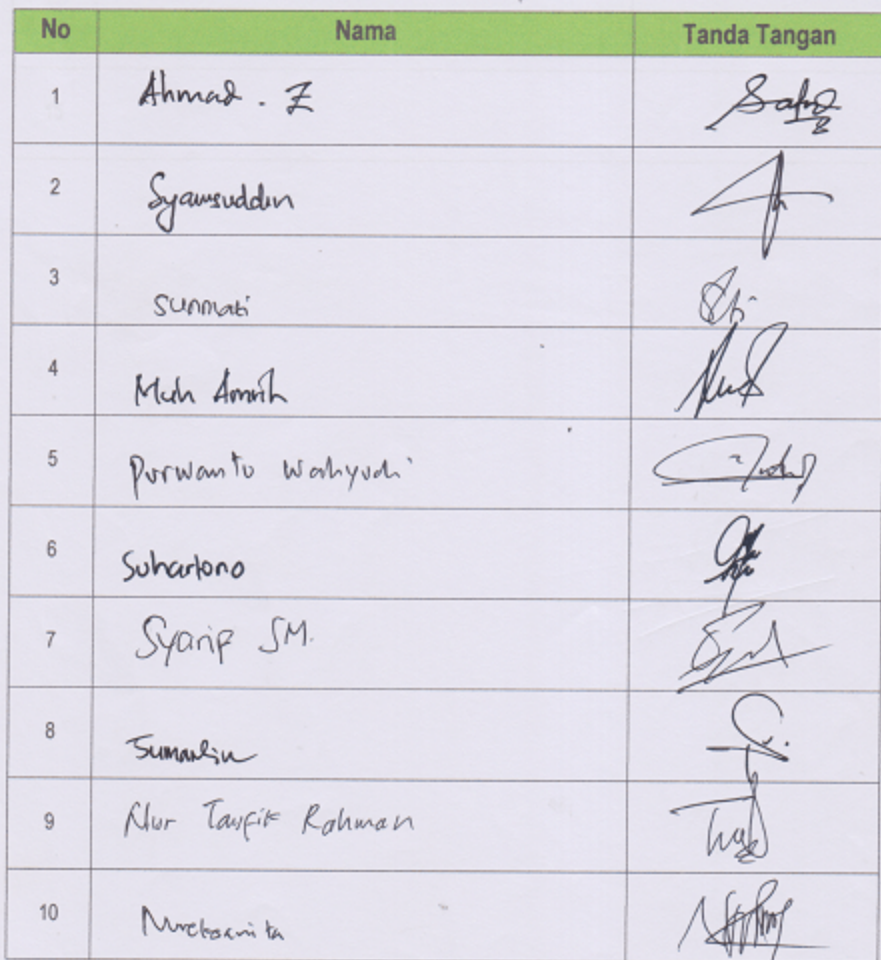 No Nama Tanda Tangan
1 Ahmad . Z
2 Syamsuddin
3 Sunmati
4 Muh Amrih
5 Purwanto Wahyudi
6 Suhartono
7 Syarip SM.
8
9 Nur Taufik Rahman
10